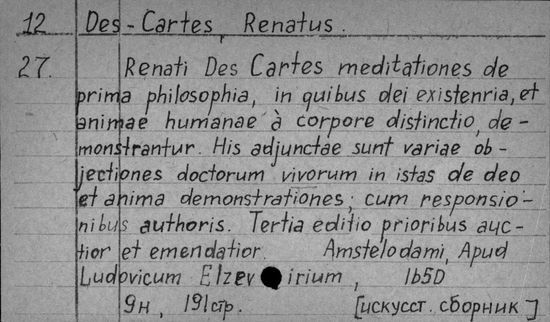 12 Des-Cartes, Renatus.
27. Renati Des Cartes meditationes de
prima philosophia, in quibus dei existenria, et
animae humanae à corpore distinctio, de-
monstrantur. His adjunctae sunt variae ob-
jectiones doctorum vivorum in istas de deo
et anima demonstrationes; cum responsio-
nibus authoris. Tertia editio prioribus auc-
tior et emendatior. Amstelodami, Apud
Ludovicum Elzevirium, 1b5D
9н, 191стр. [искусст. сборник]